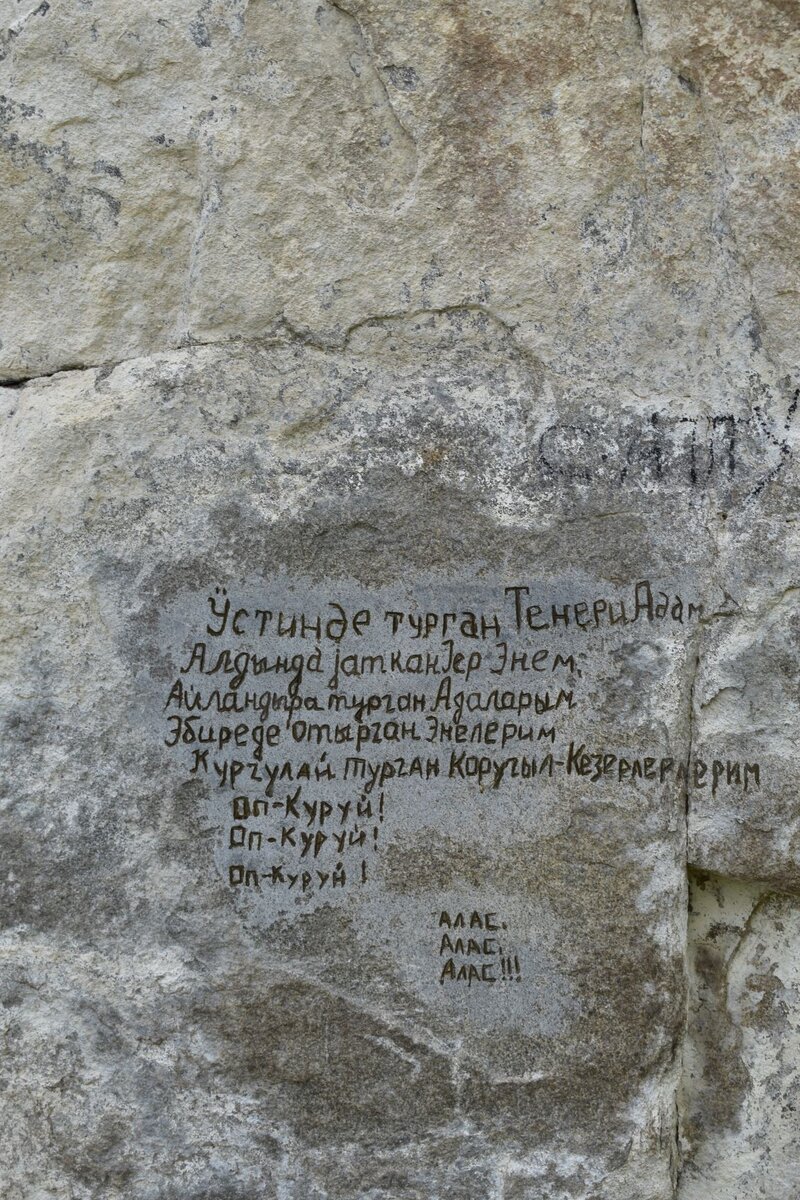 С.АТТУ
Ӱстинде турган Тенери Адам
Алдында јаткан Јер Энем,
Айландыра турган Адаларым
Эбиреде отырган Энелерим
Кургулай турган Коручыл-Кезерлерлерим
Оп-Куруй!
Оп-Куруй!
Оп-Куруй!
Алас,
Алас,
Алас!!!